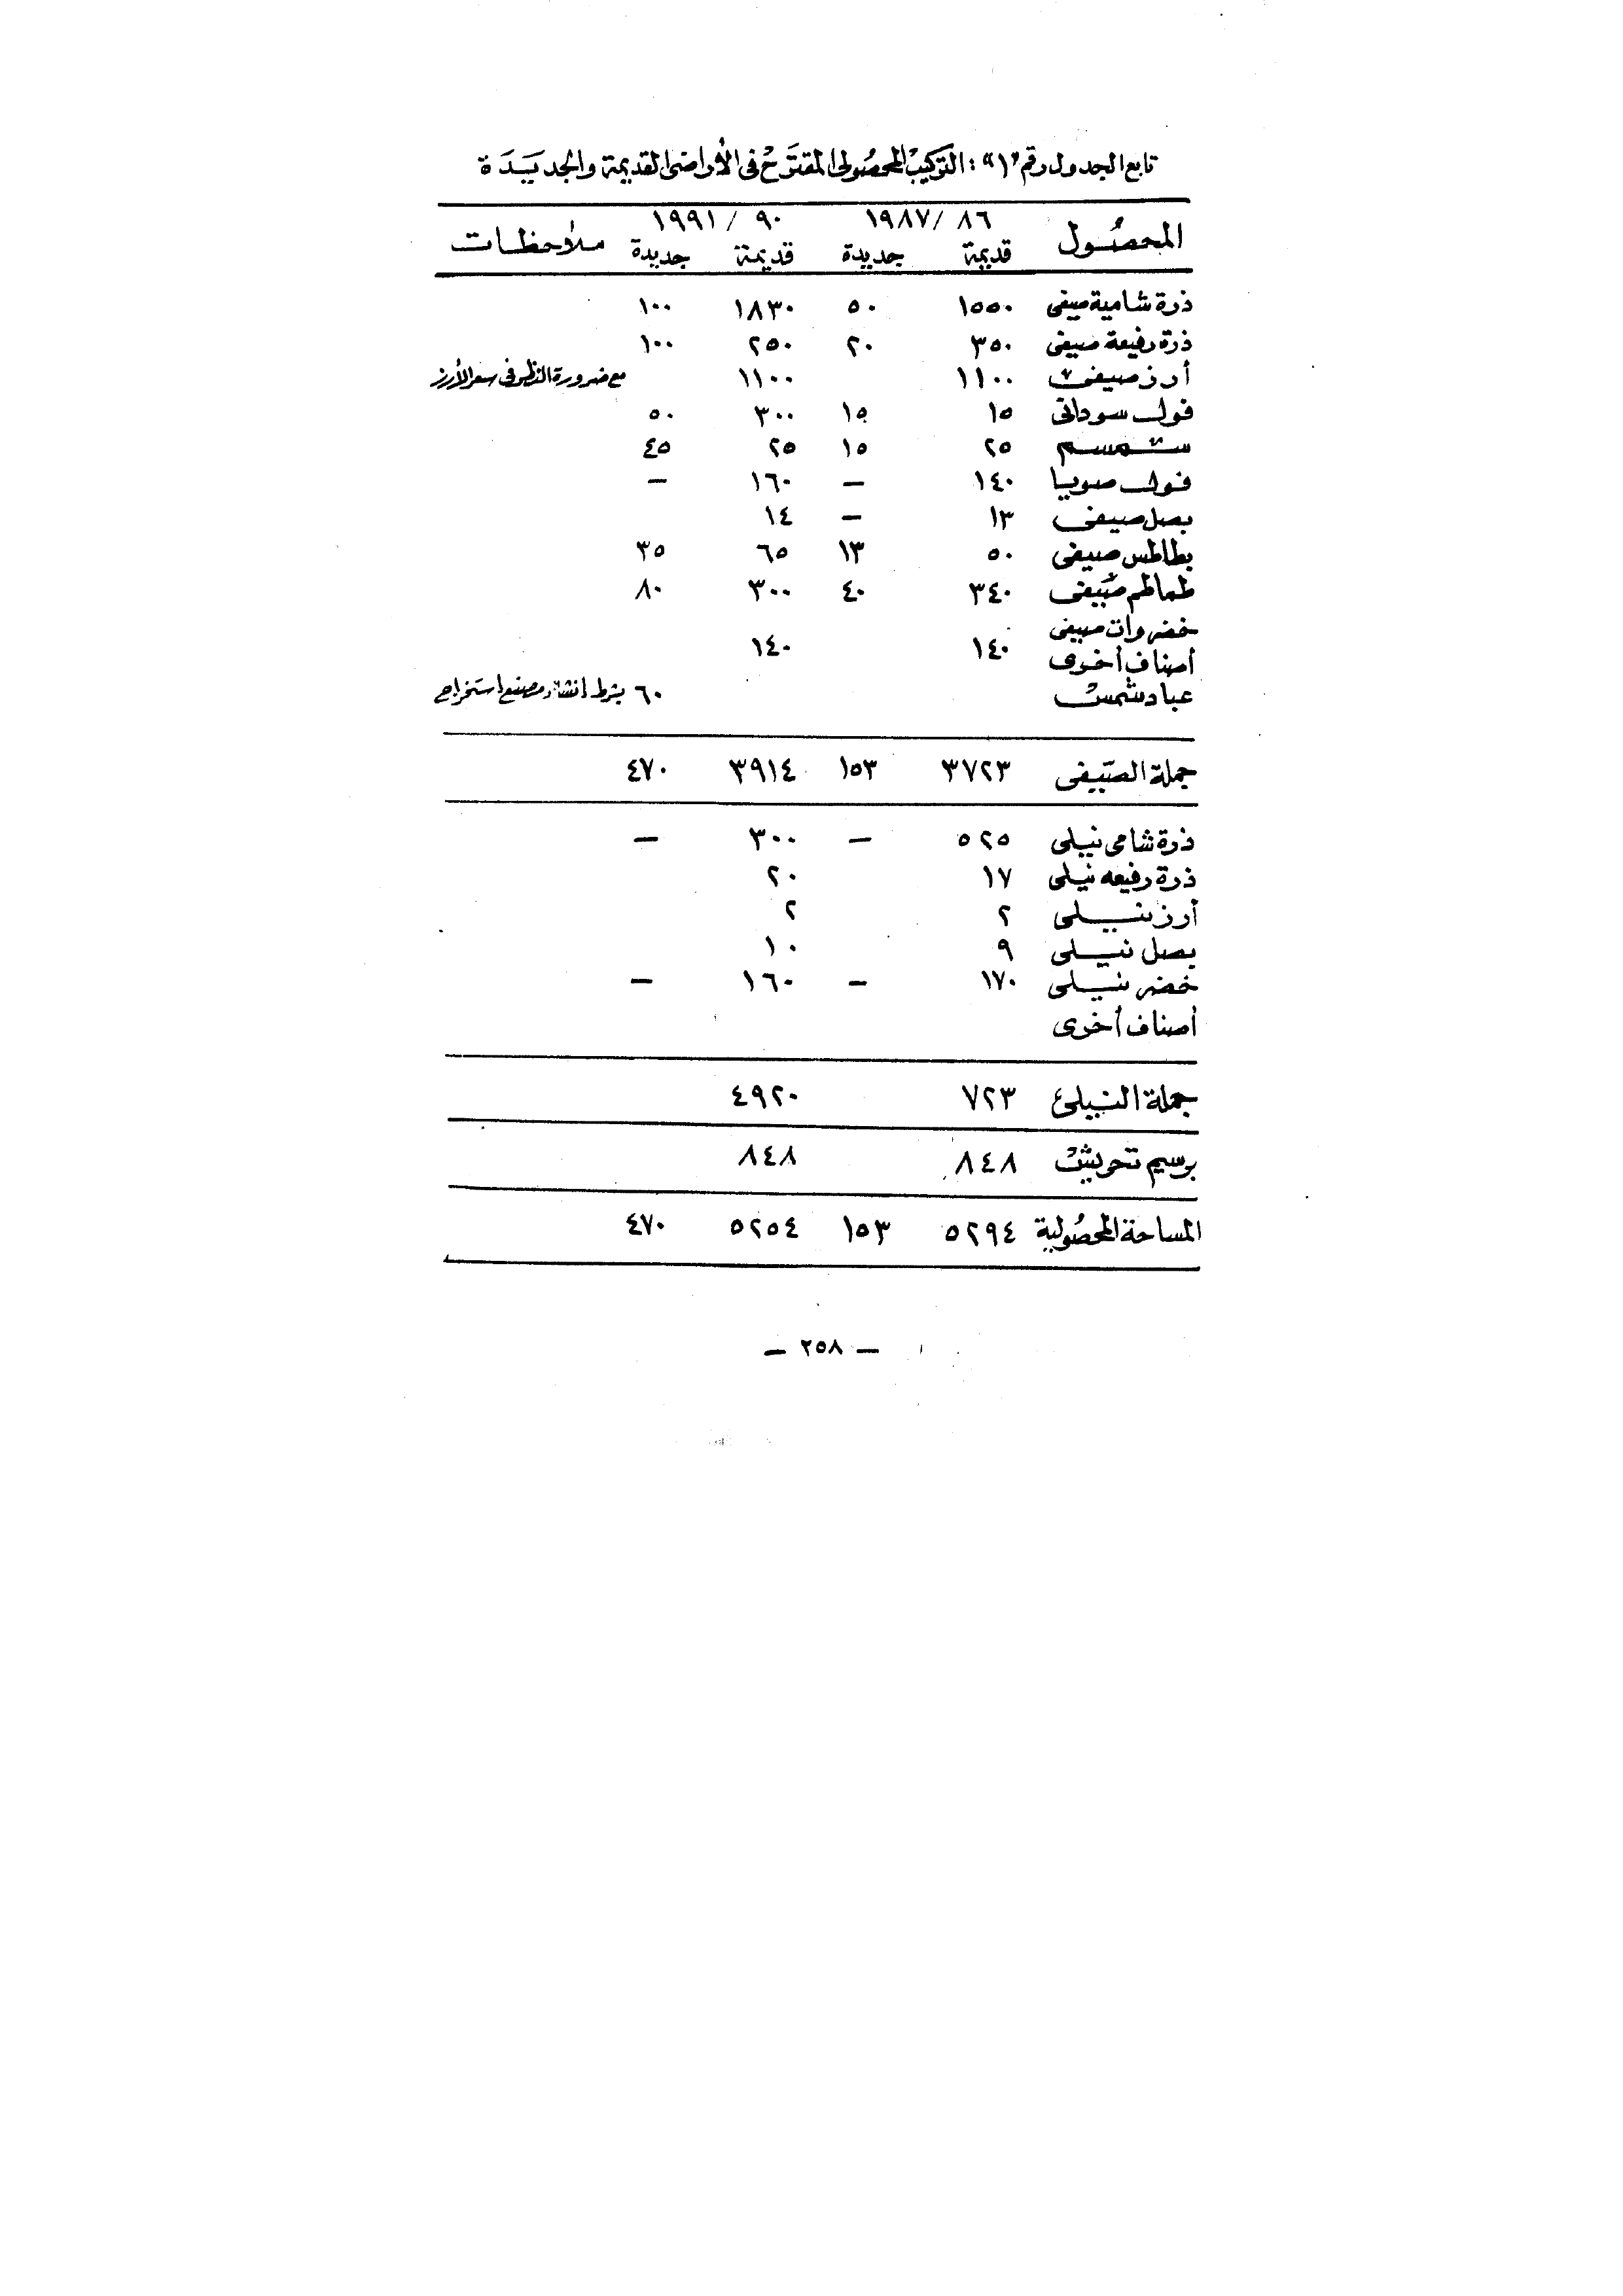 تابع الجدول رقم "١" : التركيب المحصولى المقترح فى الأراضى القديمة والجديدة
المحصول ٨٦ / ١٩٨٧ ٩٠ / ١٩٩١ ملاحظات
قديمة جديدة قديمة جديدة
ذرة شامية صيفى ١٥٥٠ ٥٠ ١٨٣٠ ١٠٠
ذرة رفيعة صيفى ٣٥٠ ٢٠ ٢٥٠ ١٠٠
أرز صيفى ١١٠٠ ١١٠٠ مع ضرورة النظر فى سعر الأرز
فول سودانى ١٥ ١٥ ٣٠٠ ٥٠
سمسم ٢٥ ١٥ ٢٥ ٤٥
فول صويا ١٤٠ — ١٦٠ —
بصل صيفى ١٣ — ١٤
بطاطس صيفى ٥٠ ١٣ ٦٥ ٣٥
طماطم صيفى ٣٤٠ ٤٠ ٣٠٠ ٨٠
خضروات صيفى
أصناف أخرى ١٤٠ ١٤٠
عباد شمس ٦٠ بشرط انشاء مصنع استخراج
جملة الصيفى ٣٧٢٣ ١٥٣ ٣٩١٤ ٤٧٠
ذرة شامى نيلى ٥٢٥ — ٣٠٠ —
ذرة رفيعه نيلى ١٧ ٢٠
أرز نيلى ٢ ٢
بصل نيلى ٩ ١٠
خضر نيلى ١٧٠ — ١٦٠ —
أصناف أخرى
جملة النيلى ٧٢٣ ٤٩٢٠
برسيم تحريش ٨٤٨ ٨٤٨
المساحة المحصولية ٥٢٩٤ ١٥٣ ٥٢٥٤ ٤٧٠
— ٢٥٨ —